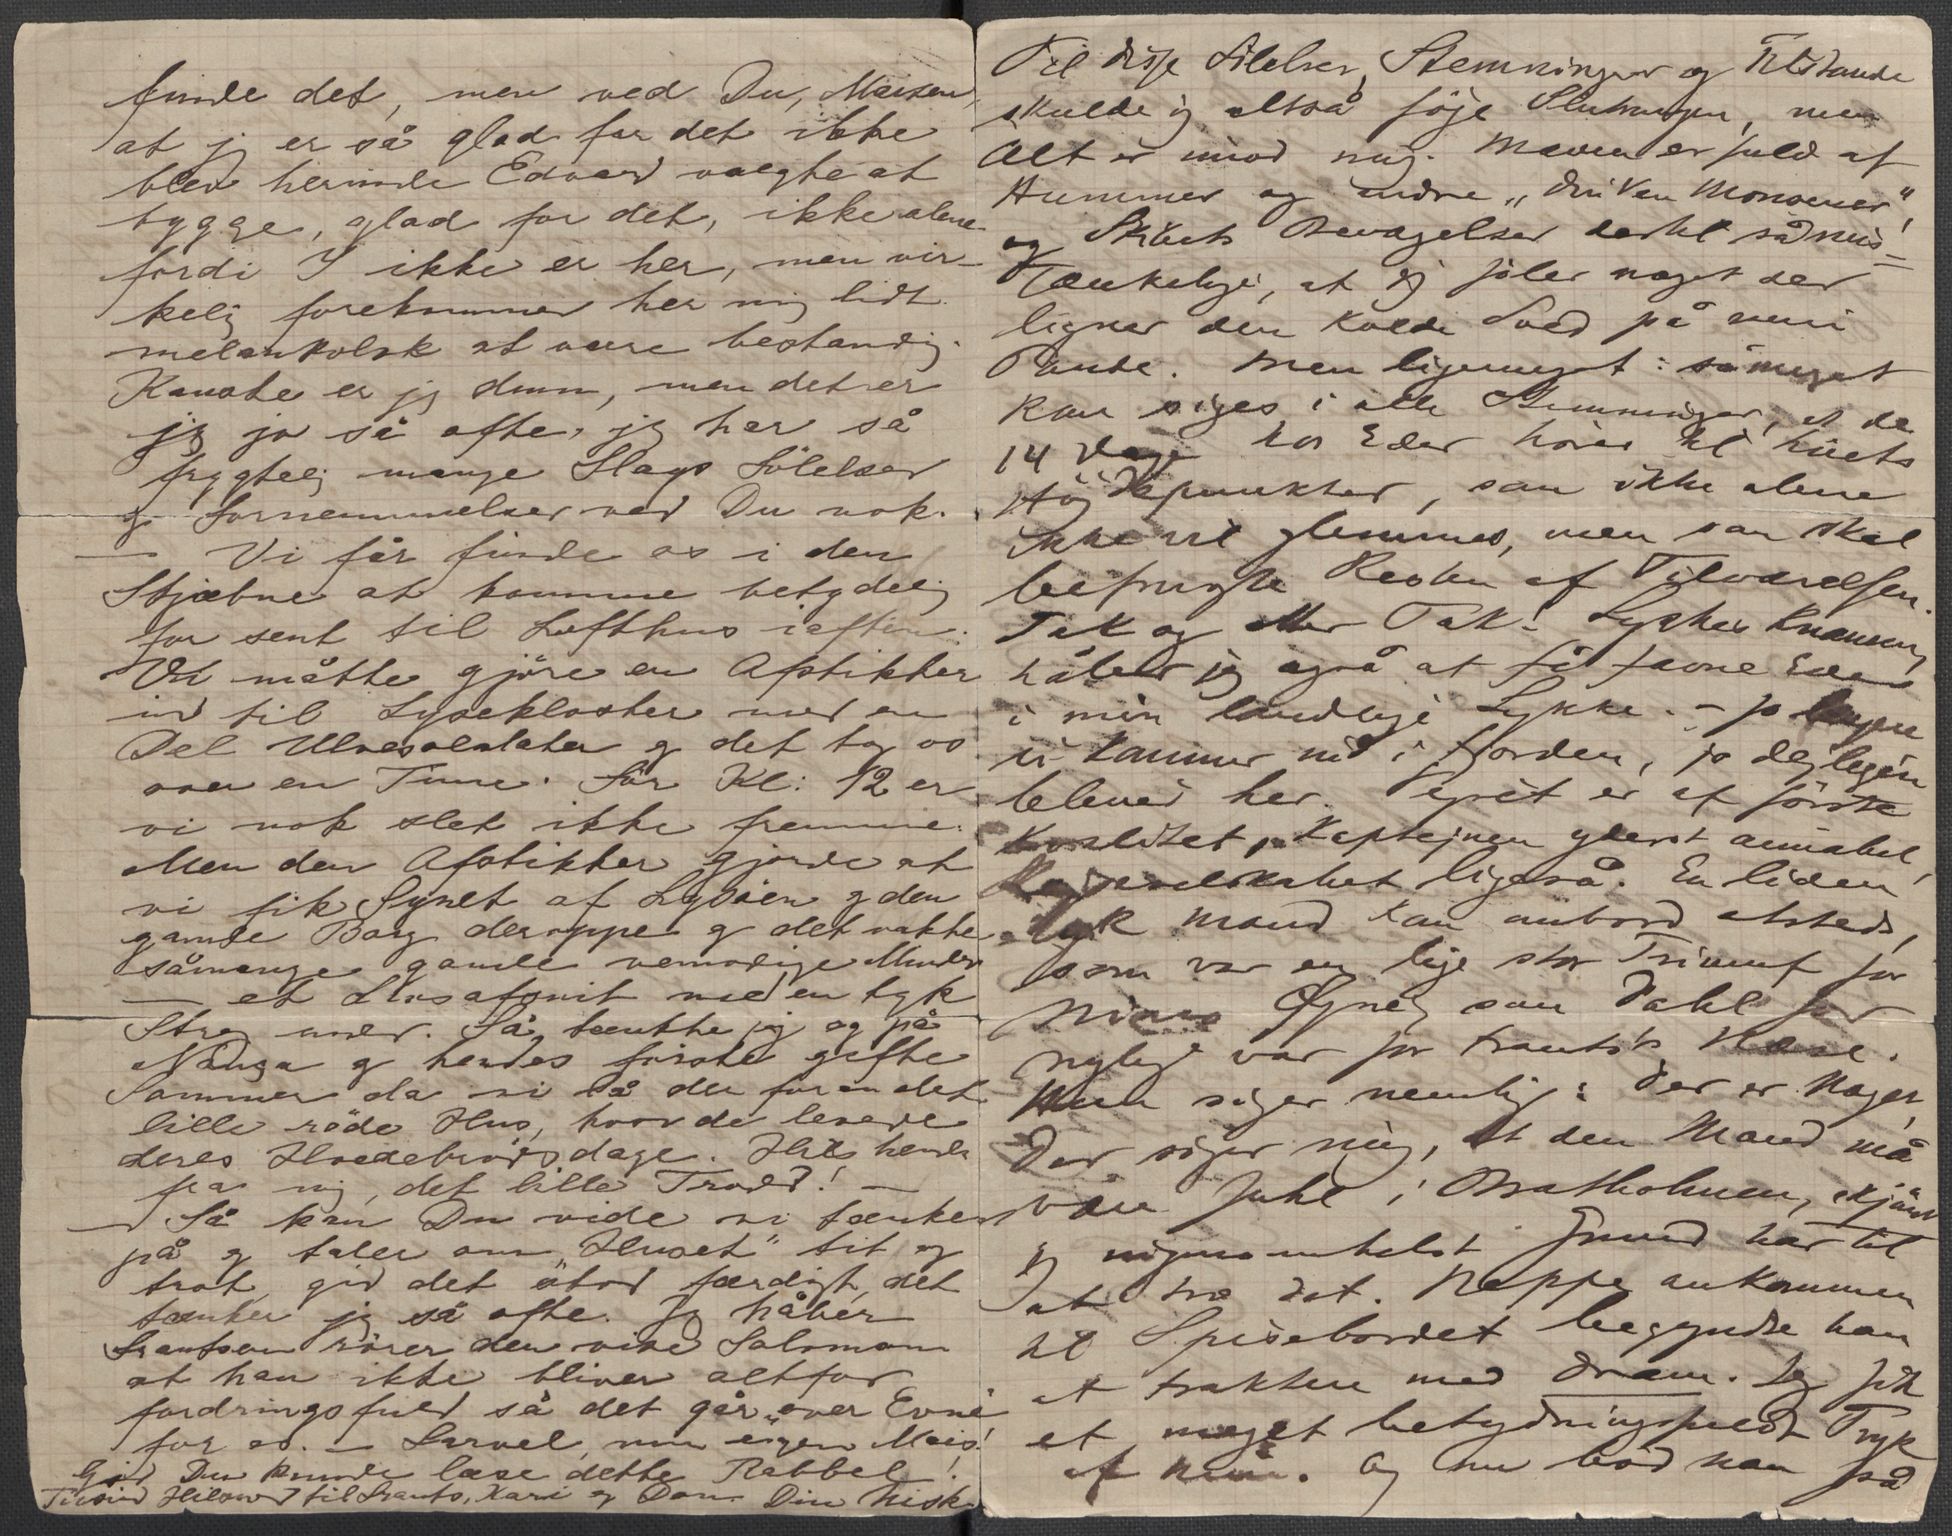 finde det, men ved Du, Maisen,
at jg er så glad for det ikke
blev herinde Edvard valgte at
bygge, glad for det, ikke alene
fordi I ikke er her, men vir-
kelig forekommer her mig lidt
melankolsk at være bestandig.
Kanske er jg dum, men det er
jg jo så ofte, jg har så
frygtelig mange Slags Fölelser
g Fornemmelser ved Du nok.
— Vi får finde os i den
Skjæbne at komme betydelig
for sent til Lofthus iaften.
Vi måtte gjöre en Afstikker
ind til Lysekloster med en
Del Ulvesalater g det tog os
over en Time. Før Kl: 12 er
vi nok slet ikke fremme.
Men den Afstikker gjorde at
vi fik Synet af Lysöen g den
gamle Borg deroppe g det vakte
såmange gamle vemodige Minder
— et
Streg under. Så tænkte jg og på
g hendes første gifte
Sommer da vi lå der foran det
lille röde Hus, hvor de levede
deres Hvedebrödsdage. Hils hende
fra mig, det lille Trold! —
— Så kan Du vide vi tænker
på g taler om "Huset" tit og
trat, gid det stod færdigt, det
tænker jg så ofte. Jg håber
Frantsen rörer den vise Salomon
at han ikke bliver altfor
fordringsfuld så det går "over Evne"
for os. — Farvel, min egen Mais!
Gid Du kunde læse dette Rabbel!
Tusind Hilsener til Frants, Kari g Dan Din Nisk
Til disse Fölelser, Stemninger og Tilstande
skulde jg altså föje Slutningen, men
Alt er imod mig. Maven er fuld af
Hummer og andre "Din Ven Monsener"!
og Skibets Bevægelser dertil så mis-
tænkelige, at jg föler noget der
ligner den kolde Sved på min
Pande. Men ligemeget: såmeget
kan siges i alle Stemninger, at de
14 Dage hos Eder hörer til Livets
Höjdepunkter, som ikke alene
ikke vil glemmes, men som skal
befrugte Resten af Tilværelsen.
Tak og atter Tak!
håber jg også at få favne Eder
i min landlige Lykke. — Jo længere
vi kommer ind i Fjorden, jo dejligere
bliver her. Vejret er af förste
Kvalitet, Kaptejnen yderst aimabel,
ligeså. En liden
tyk Mand kom ombord etsteds,
som var en lige stor Triumf for
Ninas Øgne, som Dahl for
nylig var for Frants's Næse.
Hun siger nemlig: Der er Noget,
der siger mig, at den Mand må
være Juhl i Bratholmen, skjönt
jg ingensomhelst Grund har til
at tro det. Neppe ankommen
til Spisebordet begyndte han
at traktere med Dram. Jg fik
et meget betydningsfuldt Tryk
af Nina. Og nu bød han på